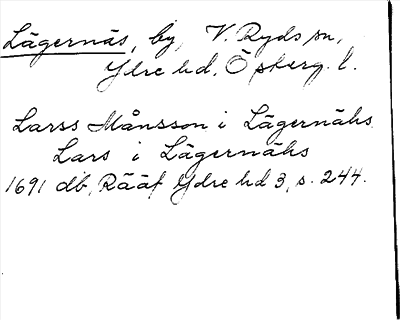 Lägernäs, by, V. Ryds sn,
Ydre hd, Öskerg. l.
Larss Månsson i Lägernähs
Lars i Lägernähs
1691 db, Rääf Ydre hd 3, s. 244.